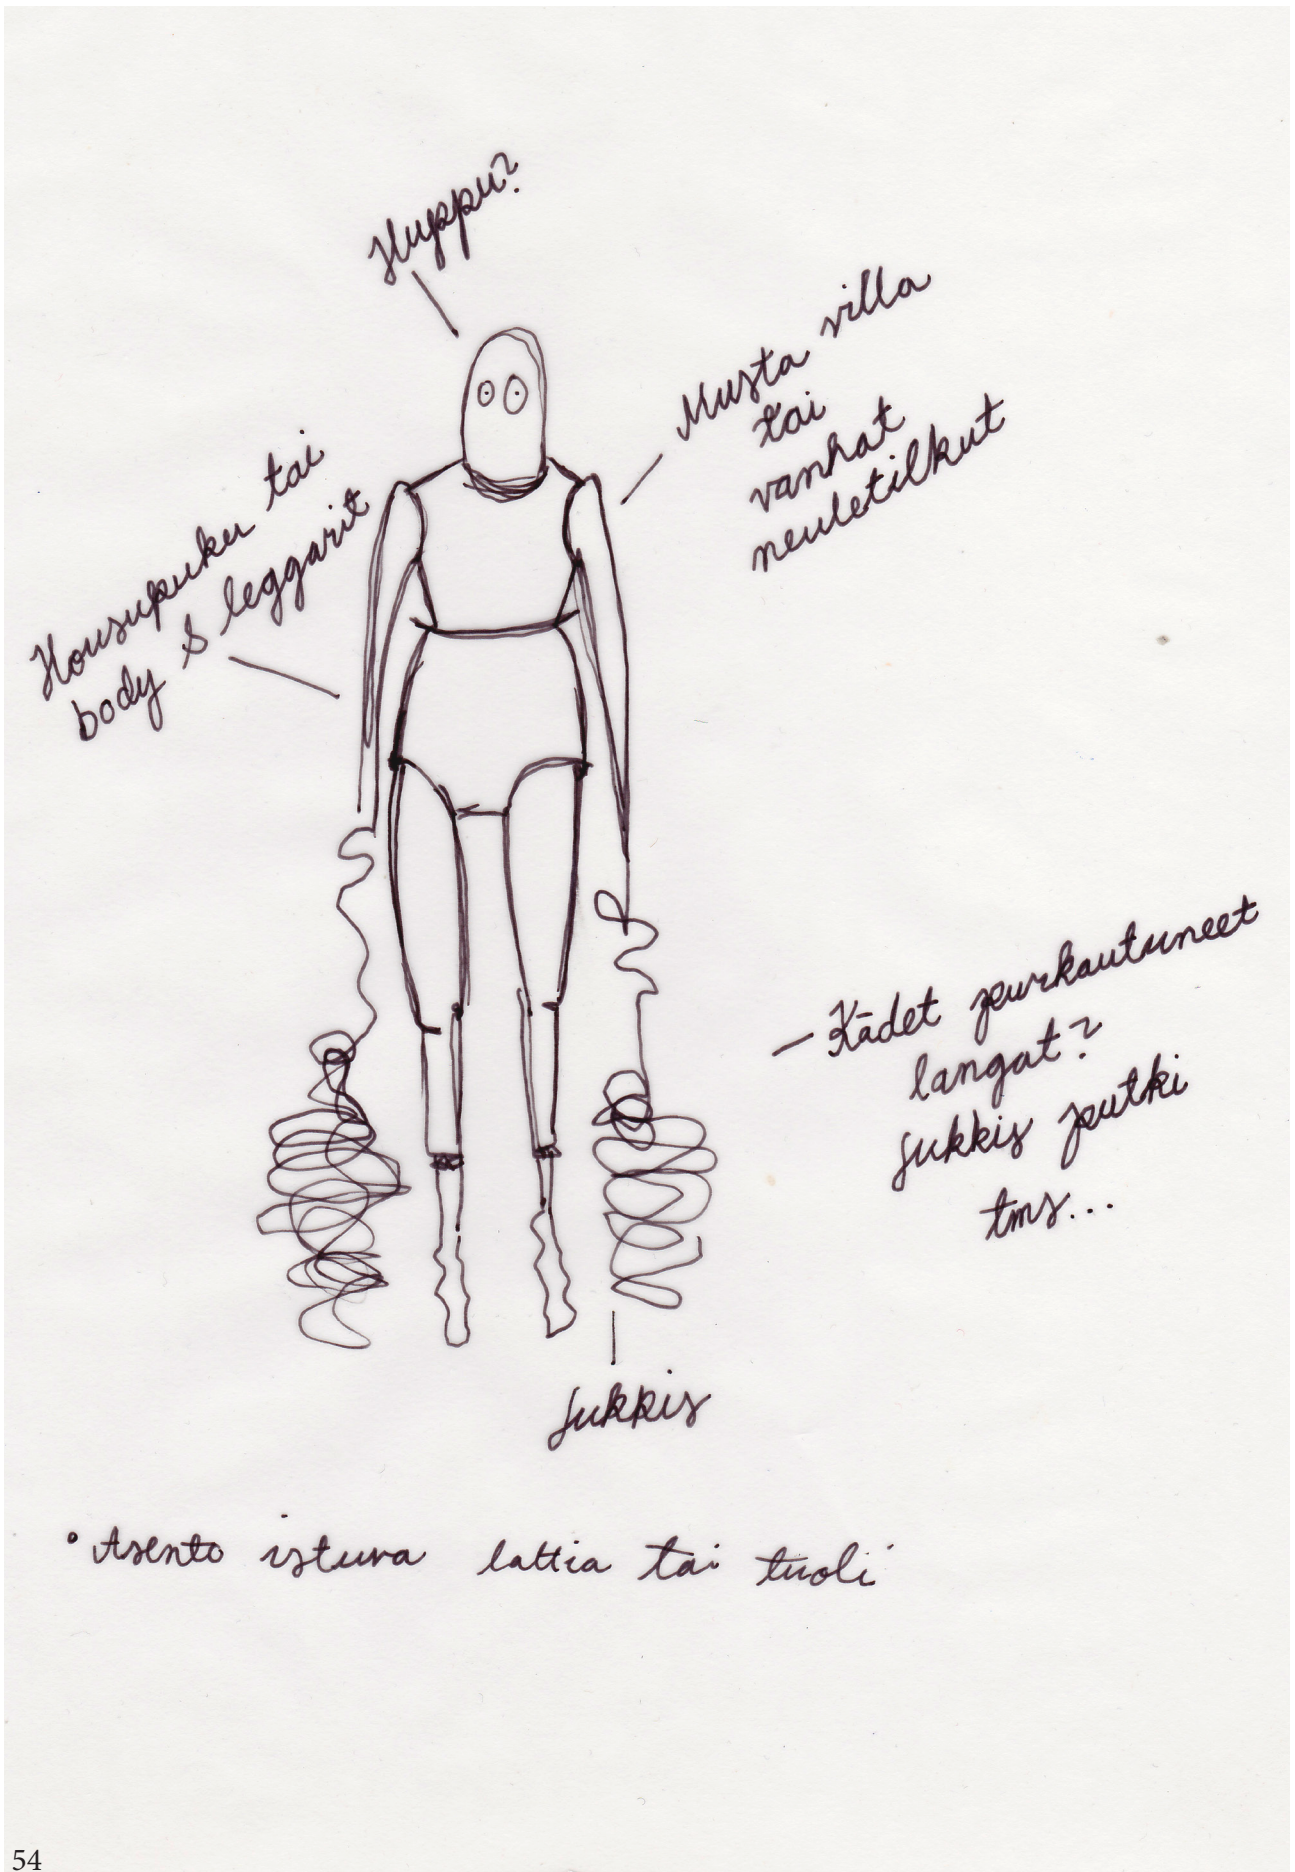 Huppu?
Musta villa
tai
vanhat
neuletilkut
Housupuku tai
body & leggarit
– Kädet purkautuneet
langat?
Sukkis putki
tms...
Sukkis
• Asento istuva lattia tai tuoli
54